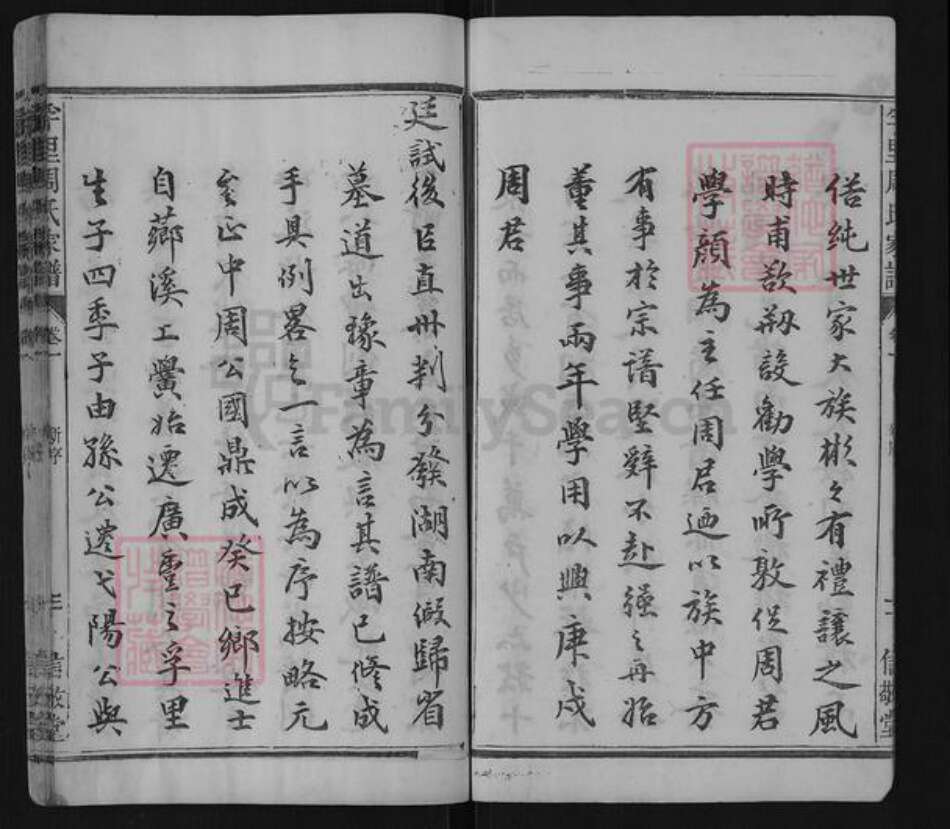 俗純世家大族彬々有禮讓之風
時甫欲剏設勸學所敦促周君
學顏為主任周君廼以族中方
有事於宗譜堅辭不赴強之再始
董其事兩年學用以興庚戌
周君
廷試後臣直州判分發湖南假歸省
墓道出豫章為言其譜已修成
手具例畧乞一言以為序按略元
至正中周公國鼎成癸巳鄉進士
自薌溪工黌始遷廣豐之孚里
生子四季子由孫公遷弋陽公與
孚里周氏家譜
卷一
新序
信敬堂
FamilySearch